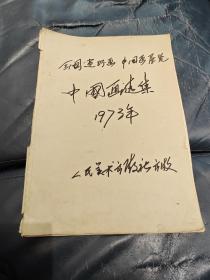 全国连环画中国画展览
中国画选集
1973年
人民美术出版社出版